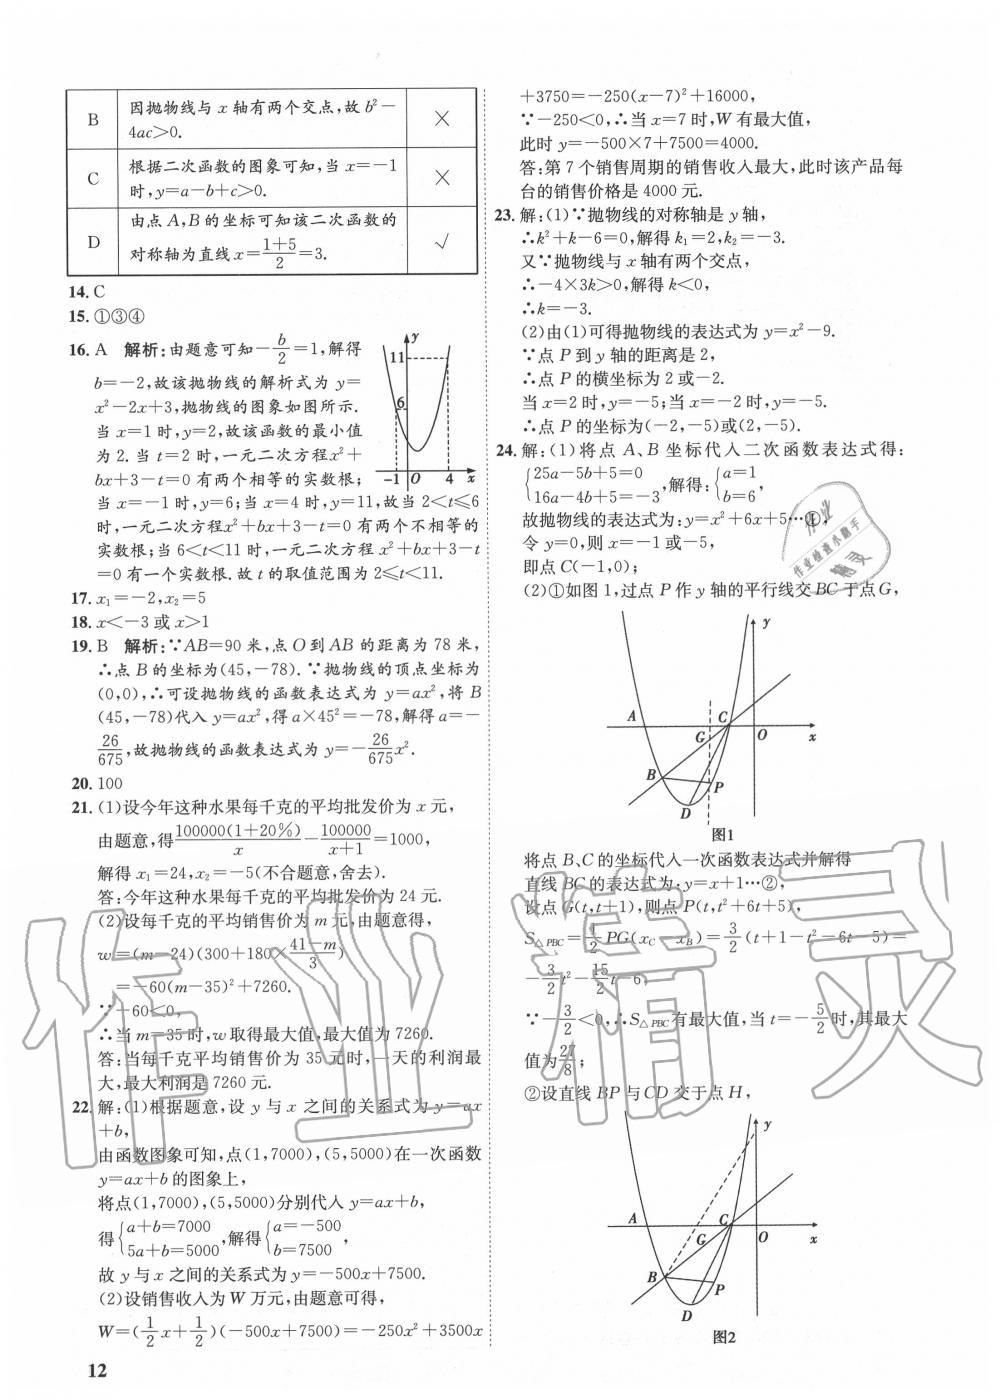 B
因抛物线与 x 轴有两个交点,故 b²－
4ac>0.
×
C
根据二次函数的图象可知,当 x=－1
时,y=a－b+c>0.
×
D
由点 A,B 的坐标可知该二次函数的
对称轴为直线 x=(1+5)/2=3.
√
14. C
15. ①③④
16. A　解析:由题意可知－b/2=1,解得
b=－2,故该抛物线的解析式为 y=
x²－2x+3,抛物线的图象如图所示.
当 x=1 时,y=2,故该函数的最小值
为 2. 当 t=2 时,一元二次方程 x²+
bx+3－t=0 有两个相等的实数根;
当 x=－1 时,y=6;当 x=4 时,y=11,故当 2<t≤6
时,一元二次方程 x²+bx+3－t=0 有两个不相等的
实数根;当 6<t<11 时,一元二次方程 x²+bx+3－t
=0 有一个实数根. 故 t 的取值范围为 2≤t<11.
y
11
6
－1
O
4
x
17. x₁=－2,x₂=5
18. x<－3 或 x>1
19. B　解析:∵AB=90 米,点 O 到 AB 的距离为 78 米,
∴点 B 的坐标为(45,－78). ∵抛物线的顶点坐标为
(0,0),∴可设抛物线的函数表达式为 y=ax²,将 B
(45,－78)代入 y=ax²,得 a×45²=－78,解得 a=－
26/675,故抛物线的函数表达式为 y=－26/675x².
20. 100
21. (1)设今年这种水果每千克的平均批发价为 x 元,
由题意,得100000(1+20%)/x－100000/(x+1)=1000,
解得 x₁=24,x₂=－5(不合题意,舍去).
答:今年这种水果每千克的平均批发价为 24 元.
(2)设每千克的平均销售价为 m 元,由题意得,
w=(m－24)(300+180×(41－m)/3)
=－60(m－35)²+7260.
∵－60<0,
∴当 m=35 时,w 取得最大值,最大值为 7260.
答:当每千克平均销售价为 35 元时,一天的利润最
大,最大利润是 7260 元.
22. 解:(1)根据题意,设 y 与 x 之间的关系式为 y=ax
+b,
由函数图象可知,点(1,7000),(5,5000)在一次函数
y=ax+b 的图象上,
将点(1,7000),(5,5000)分别代入 y=ax+b,
得{a+b=7000
5a+b=5000,解得{a=－500
b=7500,
故 y 与 x 之间的关系式为 y=－500x+7500.
(2)设销售收入为 W 万元,由题意可得,
W=(1/2x+1/2)(－500x+7500)=－250x²+3500x
12
+3750=－250(x－7)²+16000,
∵－250<0,∴当 x=7 时,W 有最大值,
此时 y=－500×7+7500=4000.
答:第 7 个销售周期的销售收入最大,此时该产品每
台的销售价格是 4000 元.
23. 解:(1)∵抛物线的对称轴是 y 轴,
∴k²+k－6=0,解得 k₁=2,k₂=－3.
又∵抛物线与 x 轴有两个交点,
∴－4×3k>0,解得 k<0,
∴k=－3.
(2)由(1)可得抛物线的表达式为 y=x²－9.
∵点 P 到 y 轴的距离是 2,
∴点 P 的横坐标为 2 或－2.
当 x=2 时,y=－5;当 x=－2 时,y=－5.
∴点 P 的坐标为(－2,－5)或(2,－5).
24. 解:(1)将点 A、B 坐标代入二次函数表达式得:
{25a－5b+5=0
16a－4b+5=－3,解得:{a=1
b=6,
故抛物线的表达式为:y=x²+6x+5…①,
令 y=0,则 x=－1 或－5,
即点 C(－1,0);
(2)①如图 1,过点 P 作 y 轴的平行线交 BC 于点 G,
y
A
C
O
x
G
B
P
D
图1
将点 B、C 的坐标代入一次函数表达式并解得
直线 BC 的表达式为:y=x+1…②,
设点 G(t,t+1),则点 P(t,t²+6t+5),
S△PBC=1/2PG(xC－xB)=3/2(t+1－t²－6t－5)=
－3/2t²－15/2t－6,
∵－3/2<0,∴S△PBC有最大值,当 t=－5/2时,其最大
值为27/8;
②设直线 BP 与 CD 交于点 H,
y
A
C
O
x
G
B
P
D
图2
作业精灵
作业检查小助手
精灵